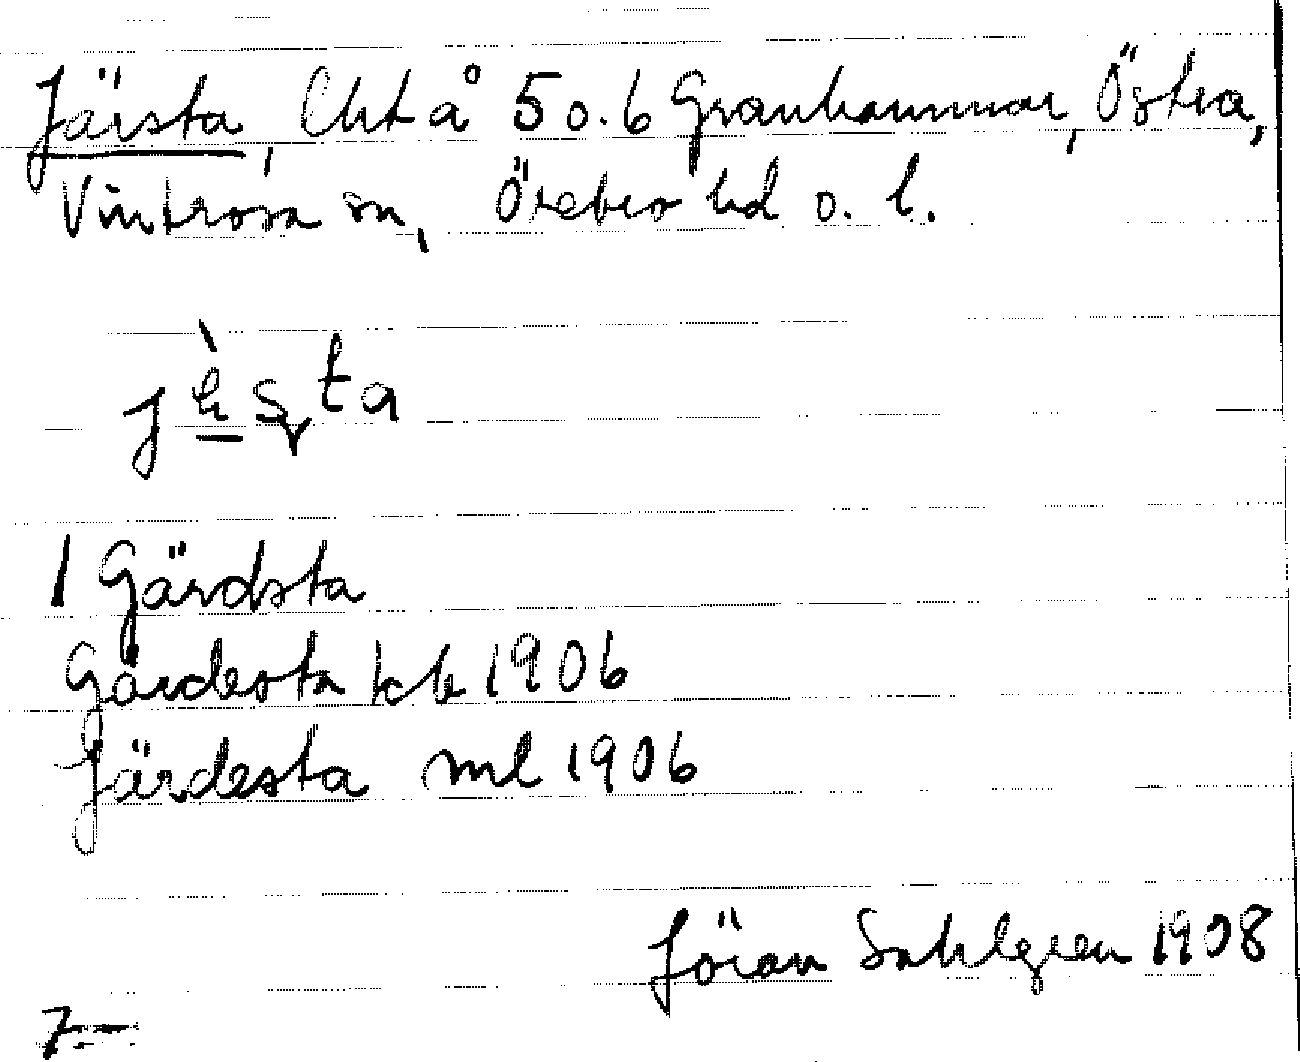 Järsta, Lht å 5 o. 6 Granhammar, Östra,
Vintrosa sn, Örebro hd o. l.
jèsta
1 Gärdsta
Gärdesta kb 1906
Järdesta ml 1906
Jöran Sahlgren 1908
7.